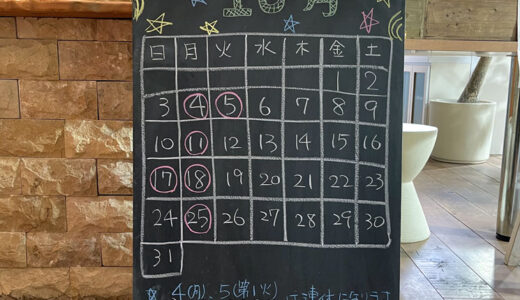 10月
日 月 火 水 木 金 土
1 2
3 4 5 6 7 8 9
10 11 12 13 14 15 16
17 18 19 20 21 22 23
24 25 26 27 28 29 30
31
4(月)、5(第1火)